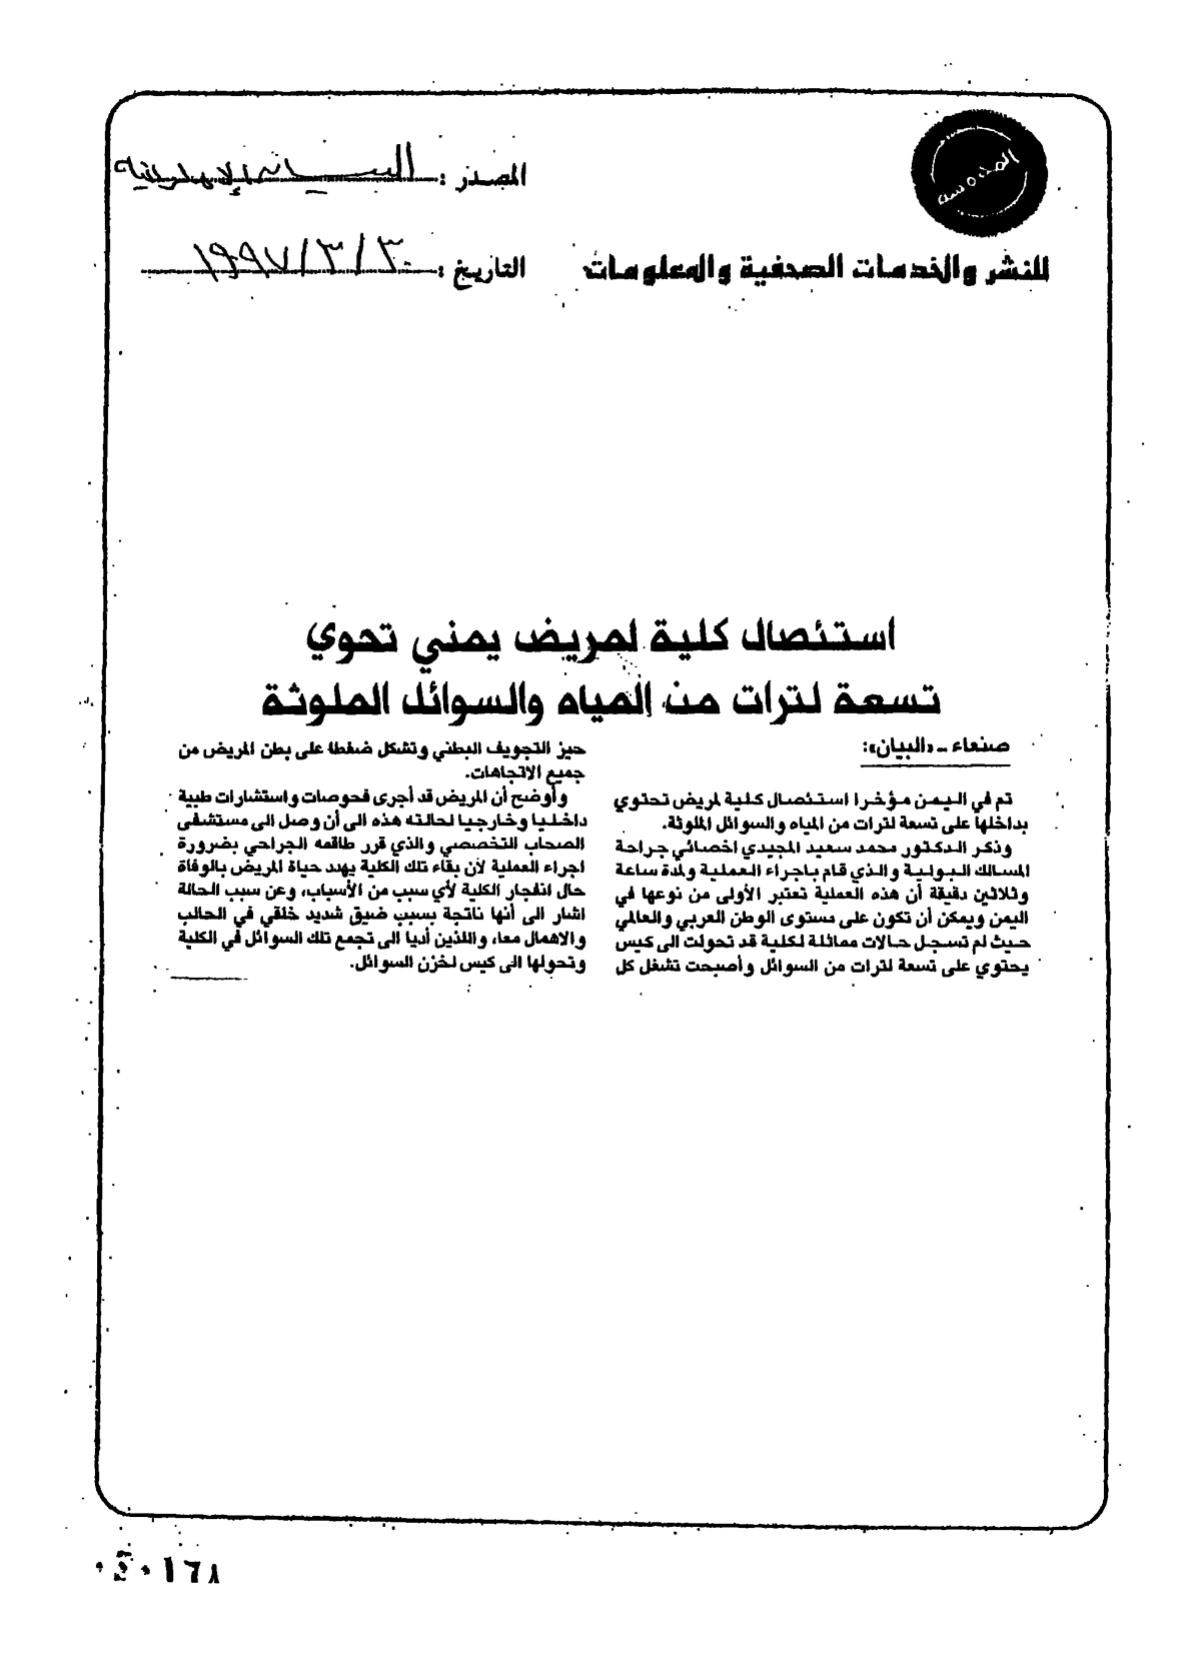 المدوسه
للنشر والخدمات الصحفية والمعلومات
المصدر : البيان الإماراتية
التاريخ : ٣٠ / ٣ / ١٩٩٧
استئصال كلية لمريض يمني تحوي
تسعة لترات من المياه والسوائل الملوثة
صنعاء ــ «البيان»:
تم في اليمن مؤخرا استئصال كلية لمريض تحتوي
بداخلها على تسعة لترات من المياه والسوائل الملوثة.
وذكر الدكتور محمد سعيد المجيدي اخصائي جراحة
المسالك البولية والذي قام باجراء العملية ولمدة ساعة
وثلاثين دقيقة أن هذه العملية تعتبر الأولى من نوعها في
اليمن ويمكن أن تكون على مستوى الوطن العربي والعالمي
حيث لم تسجل حالات مماثلة لكلية قد تحولت الى كيس
يحتوي على تسعة لترات من السوائل وأصبحت تشغل كل
حيز التجويف البطني وتشكل ضغطا على بطن المريض من
جميع الاتجاهات.
وأوضح أن المريض قد أجرى فحوصات واستشارات طبية
داخليا وخارجيا لحالته هذه الى أن وصل الى مستشفى
الصحاب التخصصي والذي قرر طاقمه الجراحي بضرورة
اجراء العملية لأن بقاء تلك الكلية يهدد حياة المريض بالوفاة
حال انفجار الكلية لأي سبب من الأسباب، وعن سبب الحالة
اشار الى أنها ناتجة بسبب ضيق شديد خلقي في الحالب
والاهمال معا، واللذين أديا الى تجمع تلك السوائل في الكلية
وتحولها الى كيس لخزن السوائل.
٠١٦٨